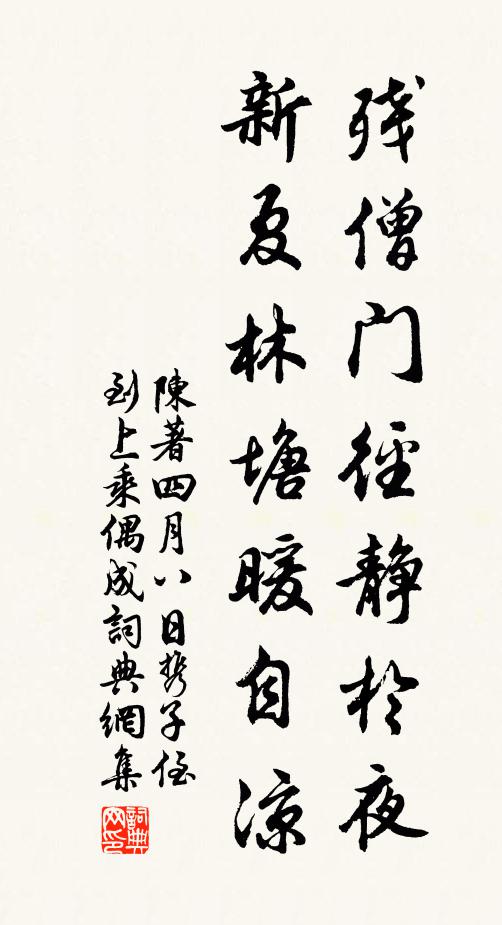 残僧門徑静於夜
新夏林塘暖自涼
陳著四月八日携子侄
到上乘偶成詞典網集
詞典
网印